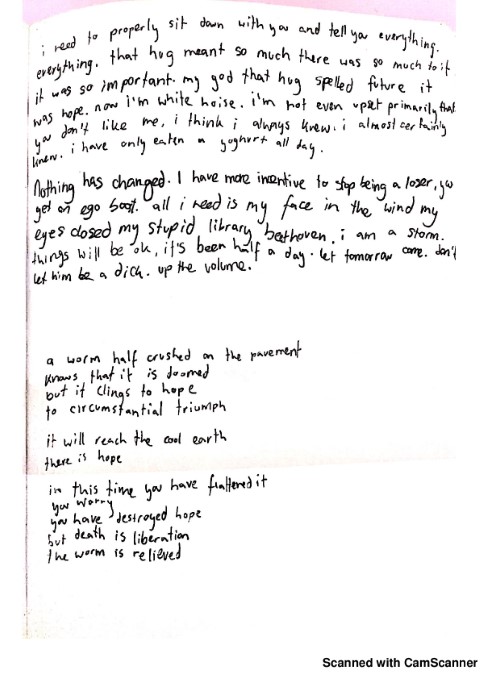 i need to properly sit down with you and tell you everything.
everything. that hug meant so much there was so much to it
it was so important. my god that hug spelled future it
was hope. now i'm white noise. i'm not even upset primarily that
you don't like me, i think i always knew. i almost certainly
knew. i have only eaten a yoghurt all day.
Nothing has changed. I have more incentive to stop being a loser, you
get an ego boost. all i need is my face in the wind my
eyes closed my stupid library beethoven. i am a storm.
things will be ok, it's been half a day. let tomorrow come. don't
let him be a dick. up the volume.
a worm half crushed on the pavement
knows that it is doomed
but it clings to hope
to circumstantial triumph
it will reach the cool earth
there is hope
in this time you have flattered it
you worry
you have destroyed hope
but death is liberation
the worm is relieved
Scanned with CamScanner